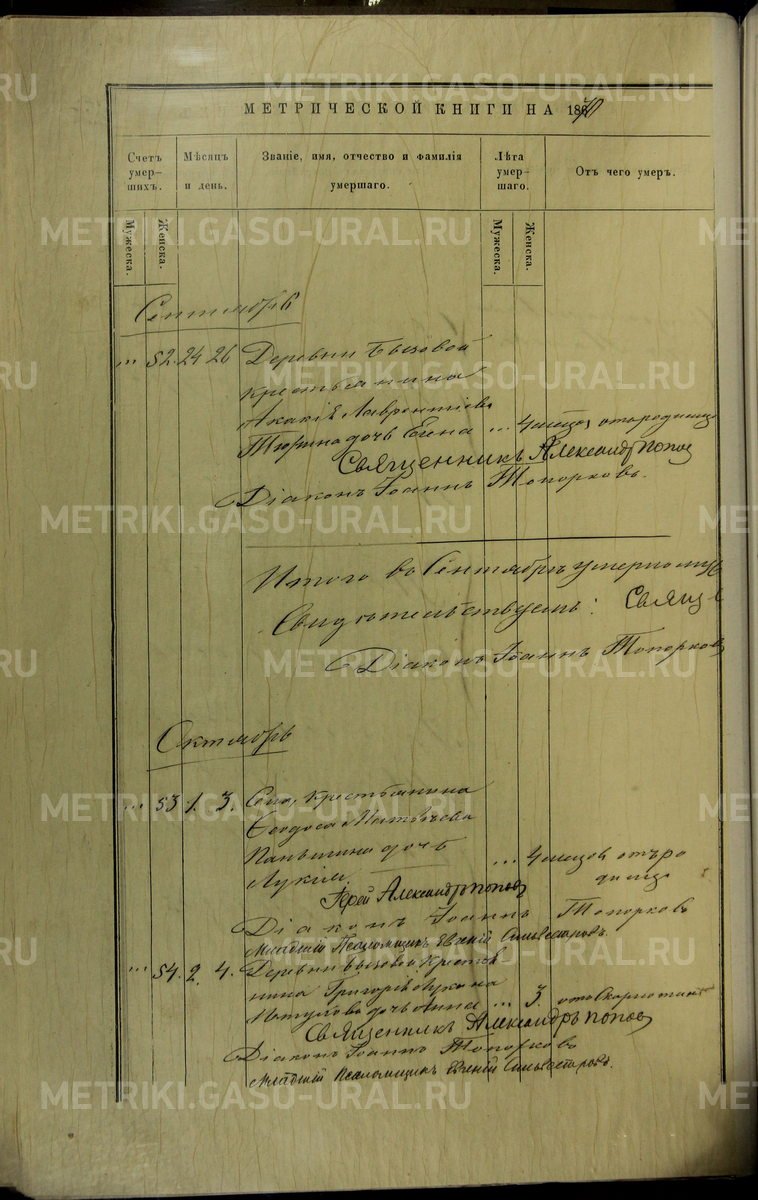 МЕТРИЧЕСКОЙ КНИГИ НА 1870
Счетъ умер- шихъ.
Мѣсяцъ и день.
Званіе, имя, отчество и фамилія умершаго.
Лѣта умер- шаго.
Отъ чего умеръ.
Мужеска.
Женска.
Мужеска.
Женска.
Сентябрь
... 52. 24 26 Деревни Бызовой
крестьянина
Акакія Лаврентіева
дочь Елена ... 4 мѣсяц
Священникъ Александръ Попов
Діаконъ Іоаннъ Топорковъ.
Итого въ Сентябрѣ умерло
Свидѣтельствуемъ: Свящ
Діаконъ Іоаннъ Топорковъ
Октябрь
... 53 1. 3. Села, крестьянина
Ѳеодоса Матвѣева
Паньшина дочь
... 4 мѣсяцов отъ ро
Іерей Александръ Попов
Діаконъ Іоаннъ Топорковъ
Младшій Псаломщикъ Евгеній Сильвестровъ.
... 54. 2. 4. Деревни Бызовой Крестья
нина Григорія
дочь Анна ... 3.
Священникъ Александръ Попов
Діаконъ Іоаннъ Топорковъ
Младшій Псаломщикъ Евгеній Сильвестровъ.
METRIKI.GASO-URAL.RU